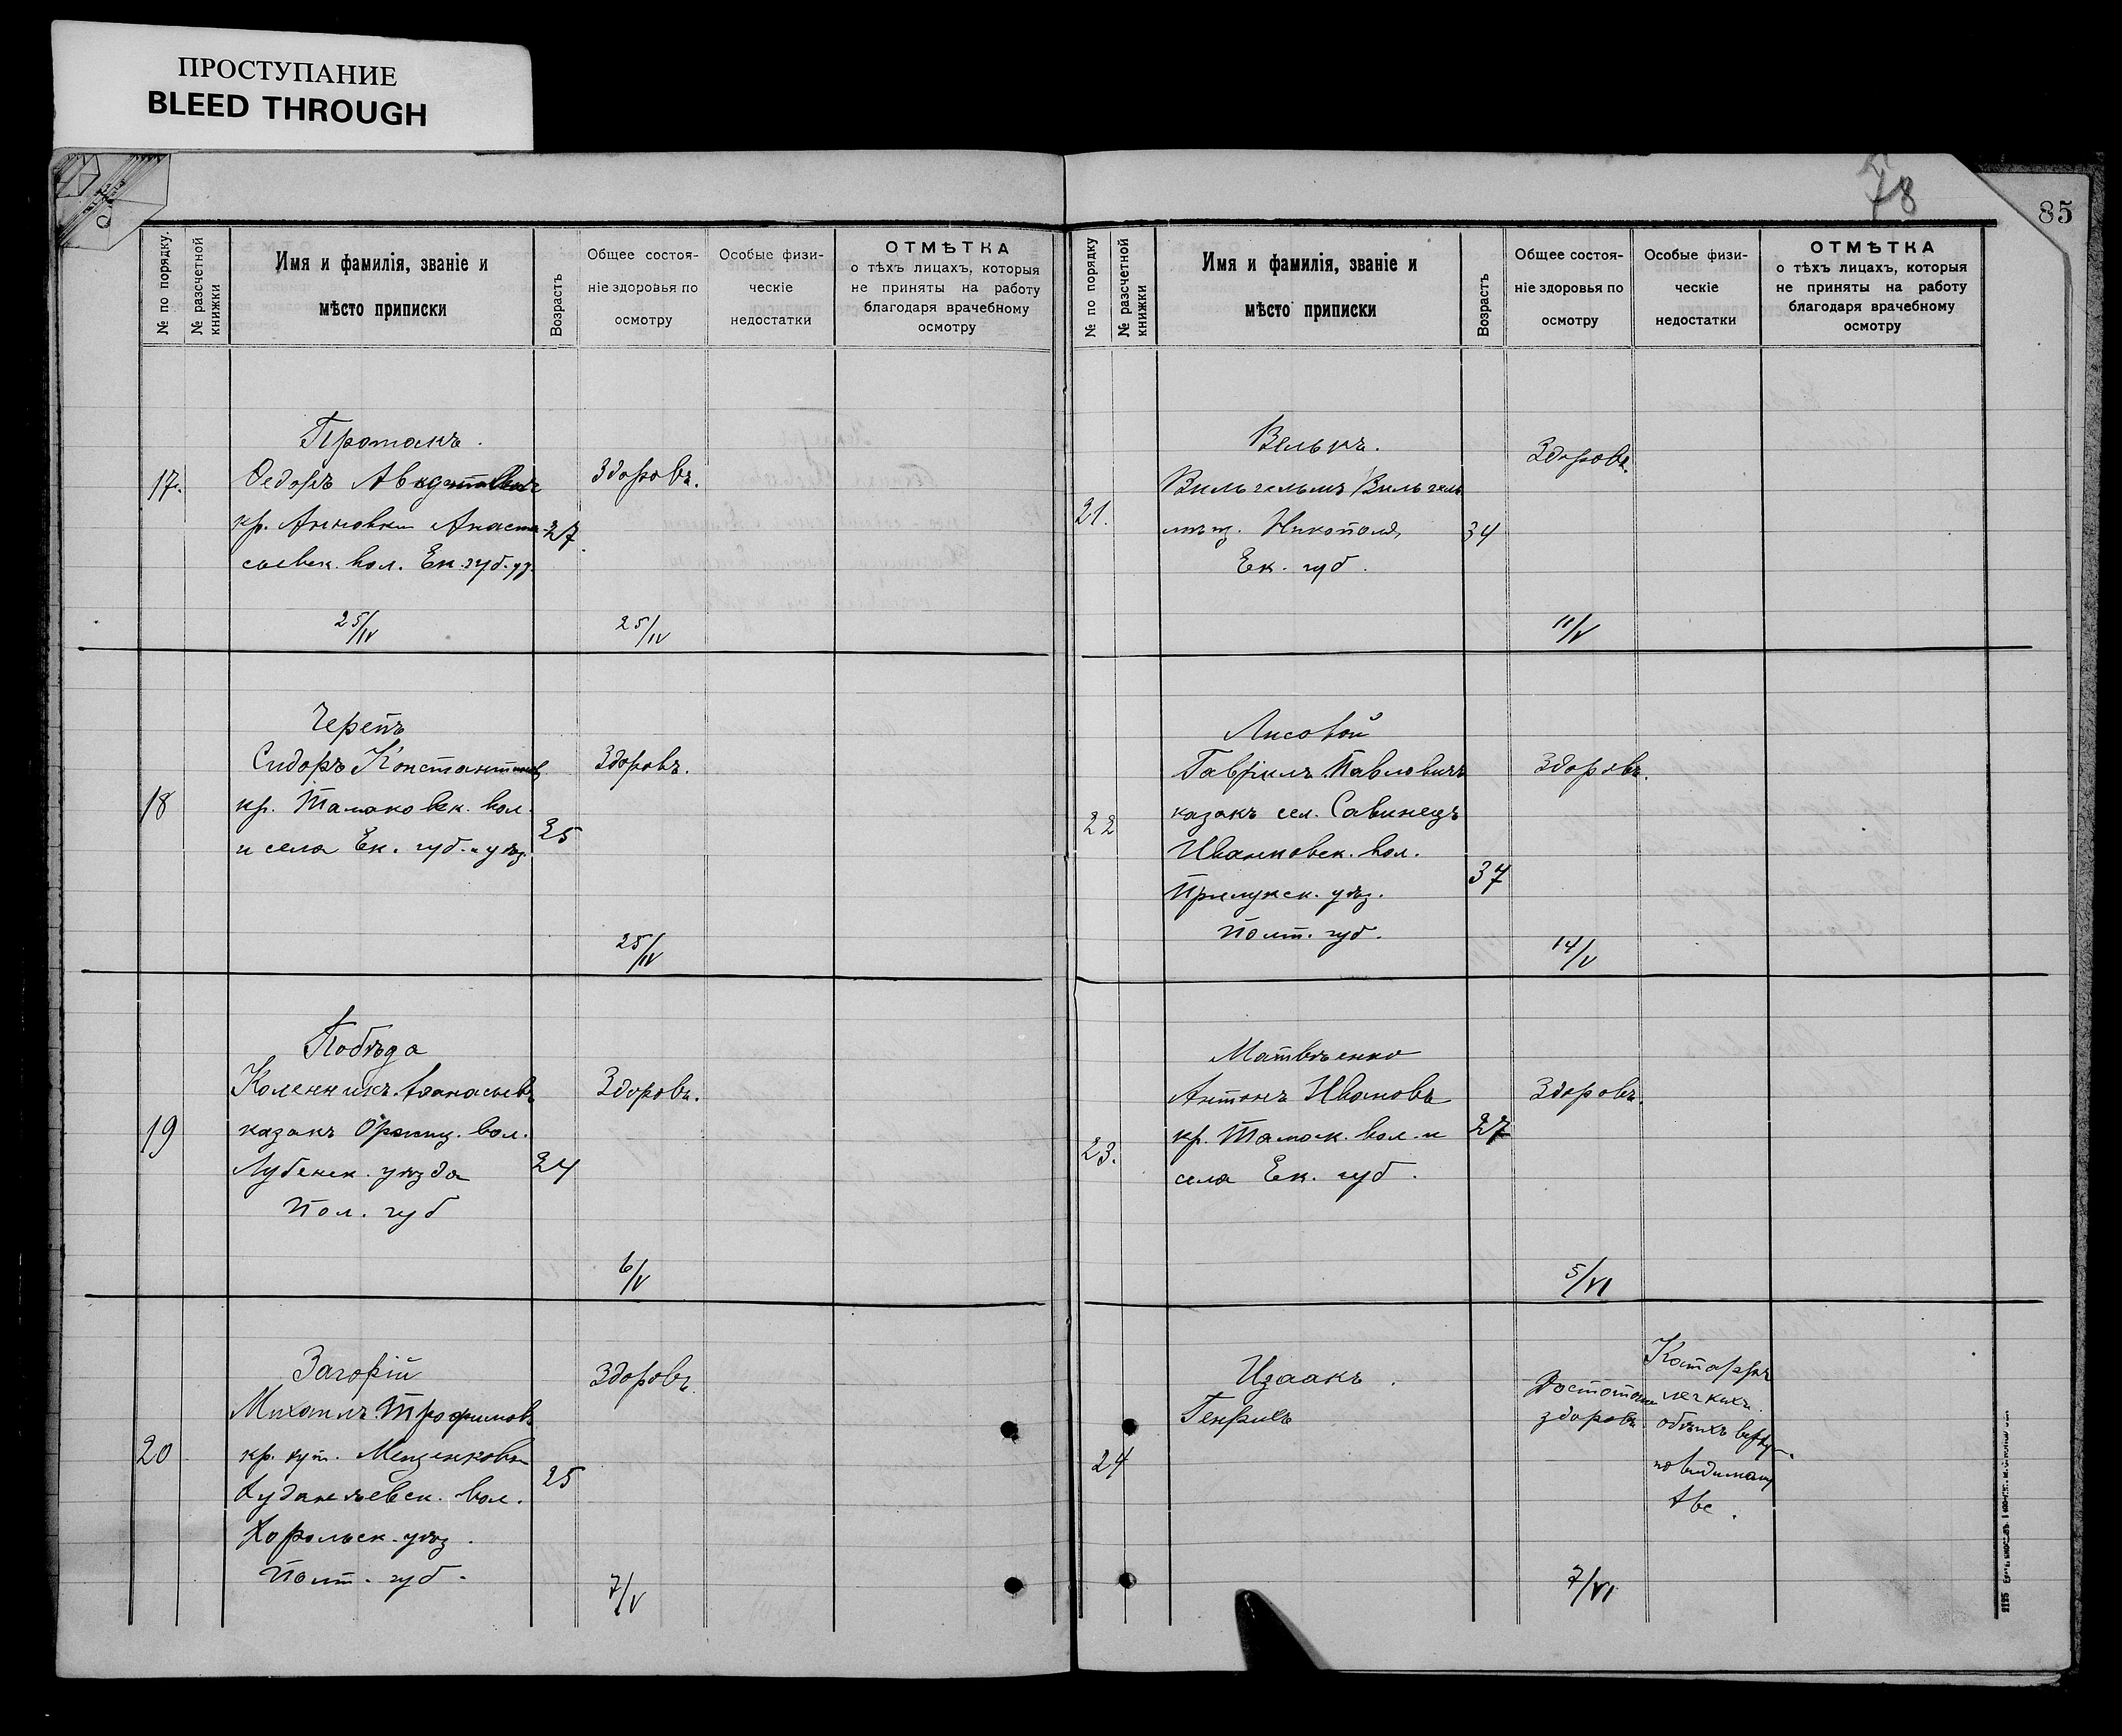 ПРОСТУПАНИЕ
BLEED THROUGH
78
85
№ по порядку.
№ разсчетной книжки
Имя и фамилія, званіе и
мѣсто приписки
Возрастъ
Общее состоя-
ніе здоровья по
осмотру
Особые физи-
ческіе
недостатки
ОТМѢТКА
о тѣхъ лицахъ, которыя
не приняты на работу
благодаря врачебному
осмотру
Протакъ.
17.
Ѳедоръ
Здоровъ.
кр. Анновки Анаста-
27
сьевск. вол. Ек. губ. уз.
25/IV
25/IV
Черепъ
Сидоръ Константинов
Здоровъ.
18
кр. Томаковск. вол.
и села Ек. губ. и уѣз.
25
25/IV
Побѣда
Каленникъ Аѳанасьевъ
Здоровъ.
19
казакъ Оржиц. вол.
Лубенск. уѣзда
24
Пол. губ
6/V
Загорій
Здоровъ.
Михаилъ Трофимовъ
20
кр. хут. Мещенкова
25
вол.
Хорольск. уѣз.
Полт. губ.
7/V
№ по порядку
№ разсчетной книжки
Имя и фамилія, званіе и
мѣсто приписки
Возрастъ
Общее состоя-
ніе здоровья по
осмотру
Особые физи-
ческіе
недостатки
ОТМѢТКА
о тѣхъ лицахъ, которыя
не приняты на работу
благодаря врачебному
осмотру
Велькъ.
Здоровъ.
Вильгельмъ Вильгель
21.
мѣщ. Никополя,
34
Ек. губ.
11/V
Лисовой
Гавріилъ Павловичъ
Здоровъ.
22
казакъ сел. Савинецъ
Иванковск. вол.
37
Прилукск. уѣз.
Полт. губ.
14/V
Матвѣенко
Антонъ Ивановъ
Здоровъ.
23.
кр. Томак. вол. и
27
села Ек. губ.
5/VI
Изаакъ.
Генрихъ
24
Достаточно
здоровъ
Катарръ
легкихъ
обѣихъ верхуш.
по видимому
Abc.
7/VI